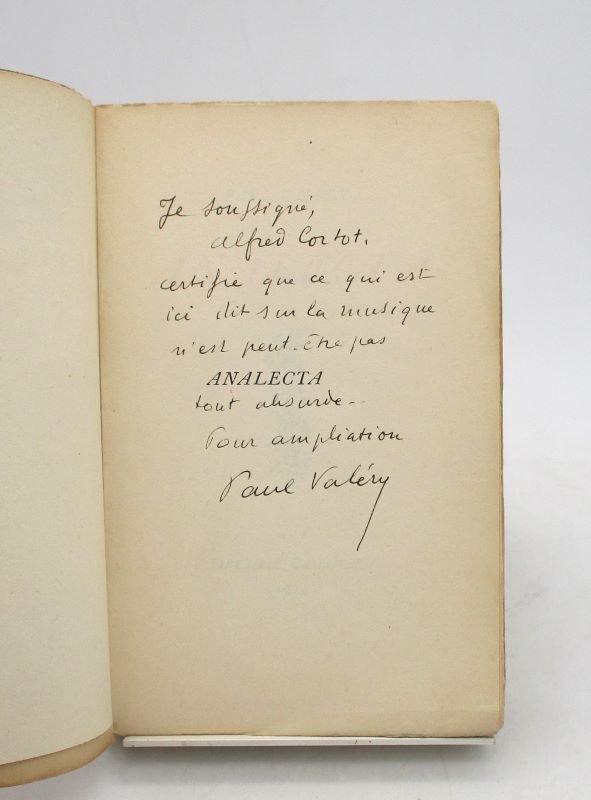 Je soussigné,
Alfred Cortot,
certifie que ce qui est
ici dit sur la musique
n'est peut-être pas
ANALECTA
tout absurde-
Pour ampliation
Paul Valéry